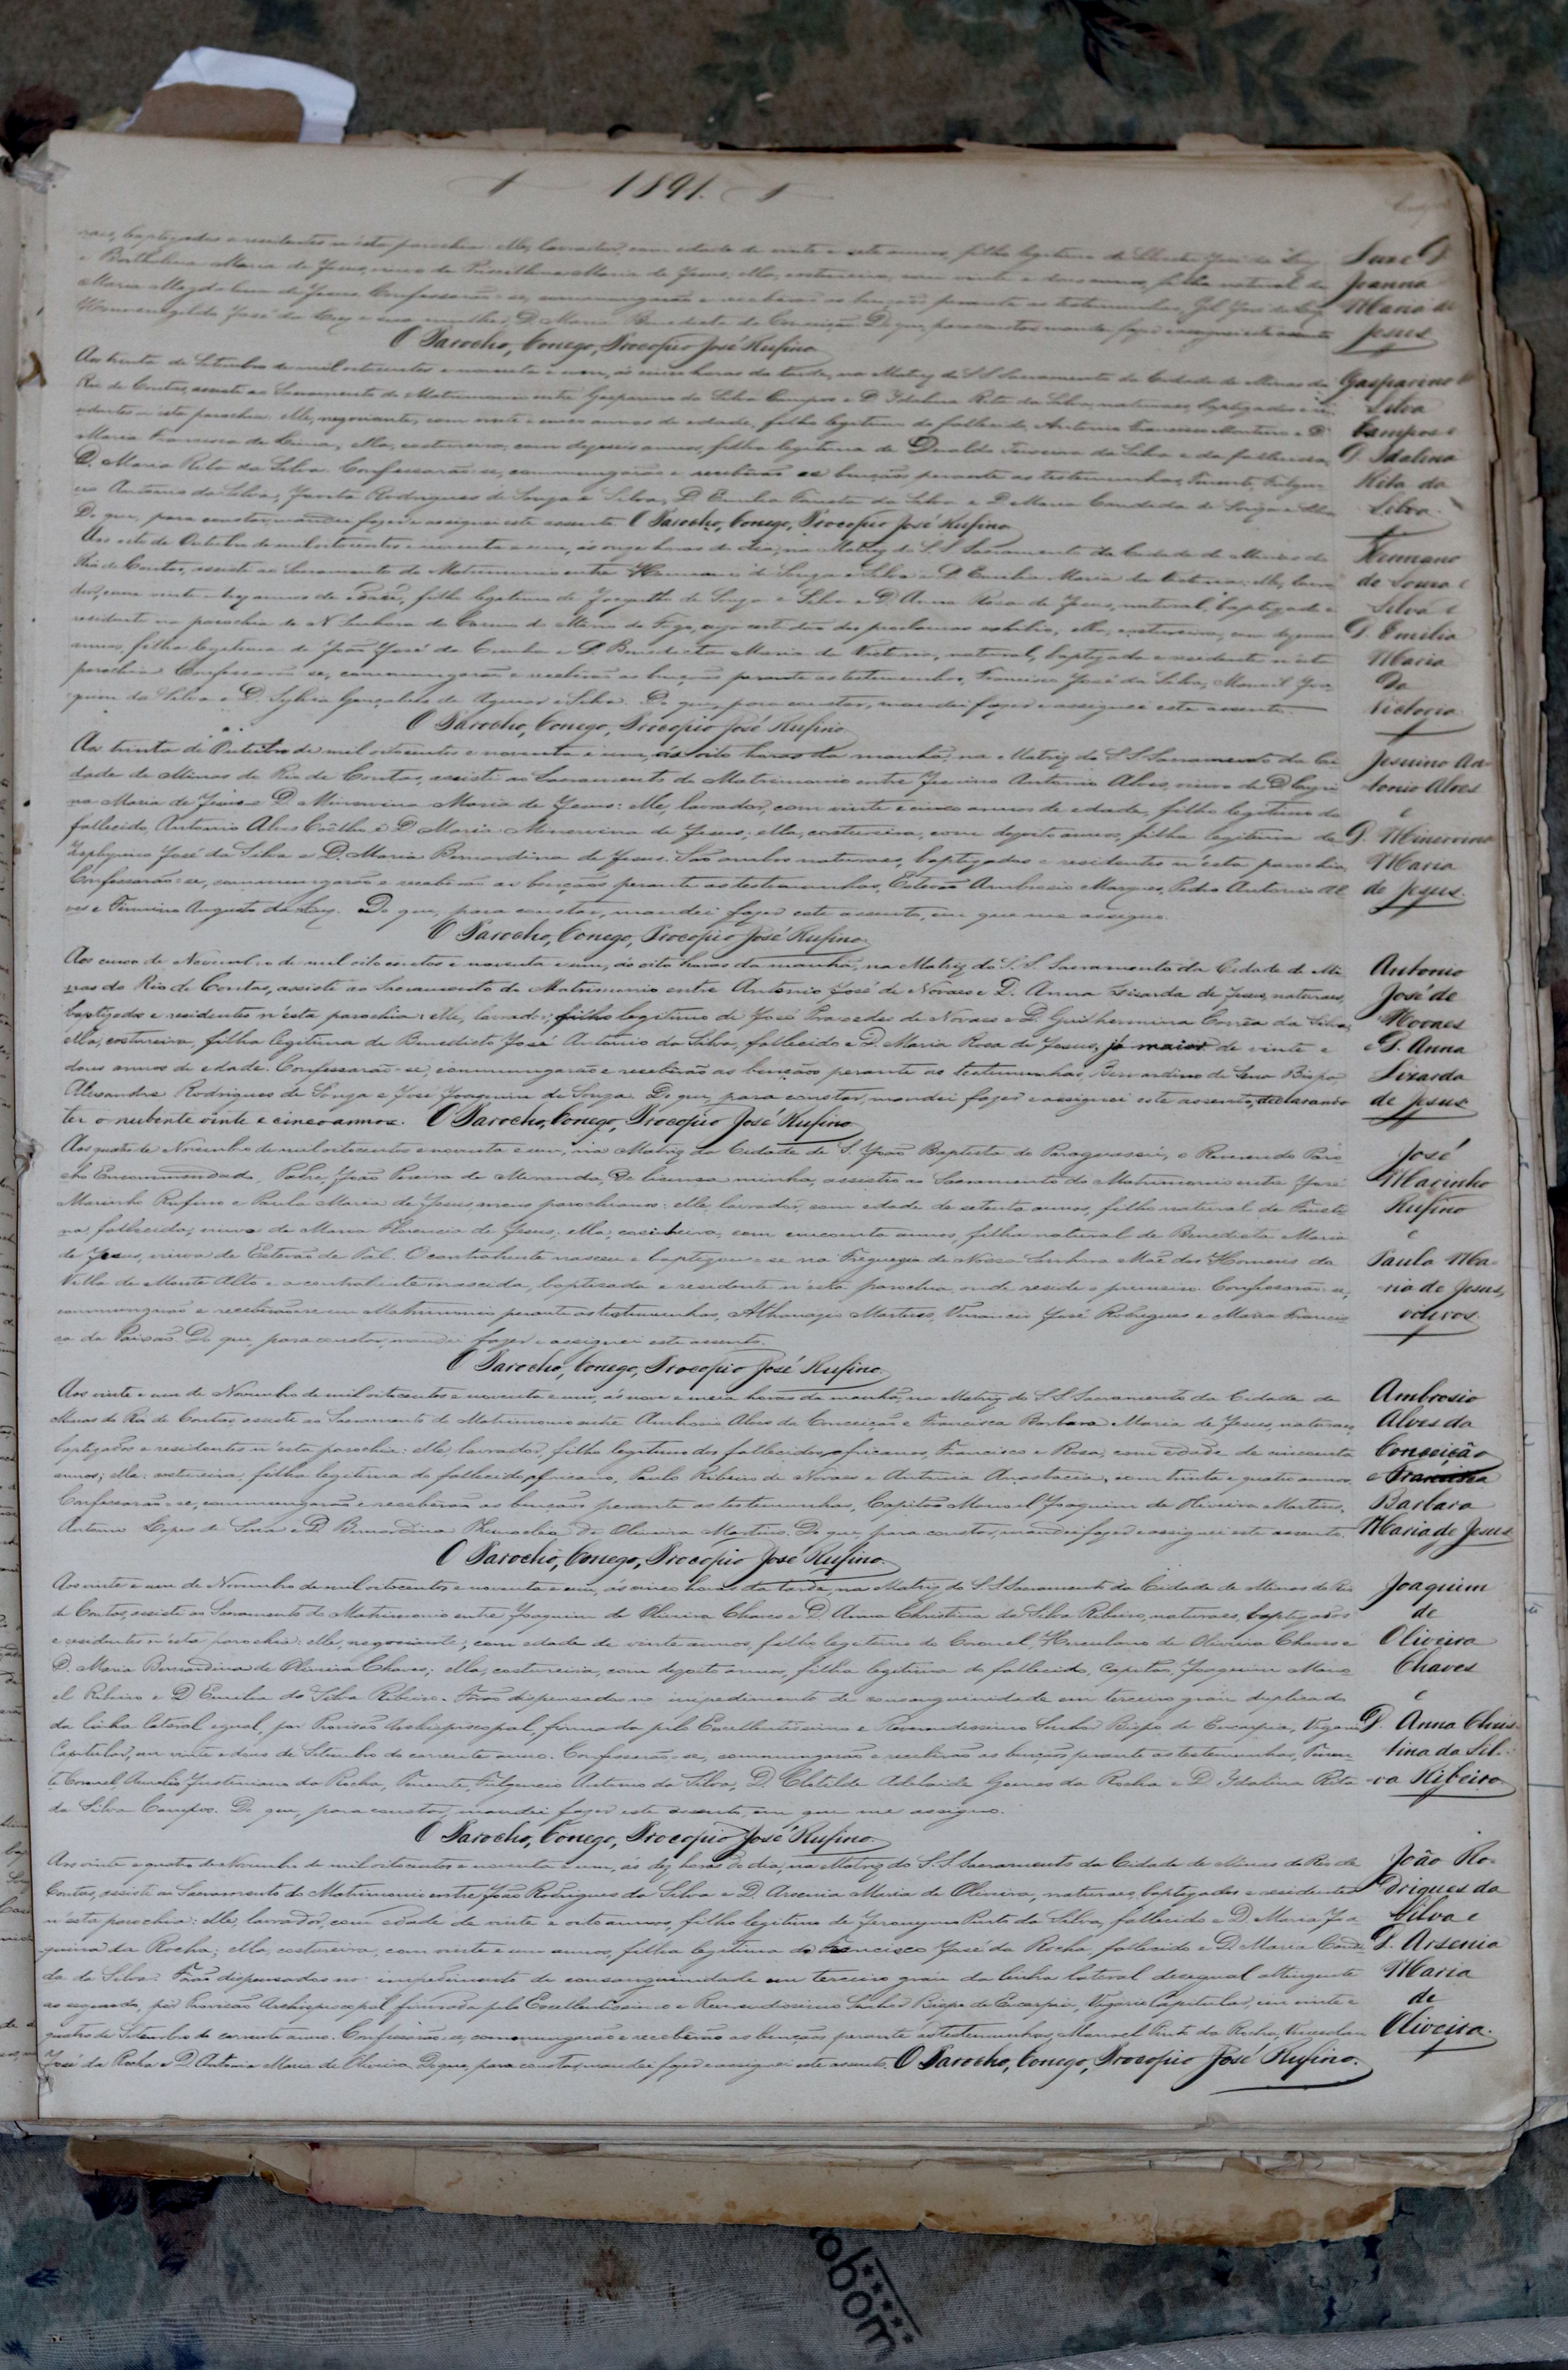 1891.
raes, baptizados e residentes n'esta parochia: elle, lavrador, com edade de vinte e sete annos, filho legitimo de
Maria de Jesus, viuvo de Maria de Jesus; ella, costureira, com vinte e dous annos, filha natural de
Maria Magdalena de Jesus. Confessarão-se, commungarão e receberão as bençãos perante as testemunhas,
José da Cruz e sua mulher, D. Maria Benedicta da Conceição. Do que, para constar, mandei fazer e assignei este assento
Joanna
Maria de
Jesus
O Parocho, Conego, Procopio José Rufino
Aos trinta de Setembro de mil oitocentos e noventa e um, ás cinco horas da tarde, na Matriz do S S Sacramento da Cidade de Minas do
Rio de Contas, assisti ao Sacramento do Matrimonio entre Gasparino da Silva Campos e D. Idalina Rita da Silva, naturaes, baptizados e re-
sidentes n'esta parochia: elle, negociante, com vinte e cinco annos de edade, filho legitimo do fallecido, Antonio Francisco Monteiro e D.
Maria Francisca de Lima; ella, costureira, com dezeseis annos, filha legitima de Teixeira da Silva e da fallecida,
D. Maria Rita da Silva. Confessarão-se, commungarão e receberão as bençãos perante as testemunhas, Tenente, Fulgen-
cio Antonio da Silva, Rodrigues de Souza e Silva, D. Emilia da Silva e D. Maria Candida de Souza e Silva
De que, para constar, mandei fazer e assignei este assento. O Parocho, Conego, Procopio José Rufino
Gasparino
Silva
Campos e
D. Idalina
Rita da
Silva.
Aos oito de Outubro de mil oitocentos e noventa e um, ás onze horas do dia, na Matriz do S. S. Sacramento da Cidade de Minas do
Rio de Contas, assisti ao Sacramento do Matrimonio entre de Souza e Silva e D. Emilia Maria da Victoria: elle, lavra-
dor, com vinte e tres annos de edade, filho legitimo de de Souza e Silva e D. Anna Rosa de Jesus, natural, baptizado e
residente na parochia de N. Senhora do Carmo do Morro do Fogo, cuja certidão dos proclamas exhibio; ella, costureira, com
annos, filha legitima de João José da Cunha e D. Benedicta Maria da Victoria, natural, baptizada e residente n'esta
parochia. Confessarão-se, commungarão e receberão as bençãos perante as testemunhas, Francisco José da Silva, Manoel Joa-
quim da Silva e D. Sylvia Gonçalves de Aguiar e Silva. Do que, para constar, mandei fazer e assignei este assento.
O Parocho, Conego, Procopio José Rufino
de Souza e
Silva e
D. Emilia
Maria
da
Victoria
Aos trinta de Outubro de mil oitocentos e noventa e um, ás oito horas da manhã, na Matriz do S. S. Sacramento da Ci-
dade de Minas do Rio de Contas, assisti ao Sacramento do Matrimonio entre Jesuino Antonio Alves, viuvo de D.
na Maria de Jesus e D. Minervina Maria de Jesus: elle, lavrador, com vinte e cinco annos de edade, filho legitimo do
fallecido, Antonio Alves Coêlho e D. Maria Minervina de Jesus; ella, costureira, com dezoito annos, filha legitima de
Zephyrino José da Silva e D. Maria Bernardina de Jesus. São ambos naturaes, baptizados e residentes n'esta parochia.
Confessarão-se, commungarão e receberão as bençãos perante as testemunhas, Estevão Ambrosio Marques, Pedro Antonio Al-
ves e Firmino Augusto da Luz. Do que, para constar, mandei fazer este assento, em que me assigno.
O Parocho, Conego, Procopio José Rufino.
Jesuino An-
tonio Alves
e
D. Minervina
Maria
de Jesus.
Aos cinco de Novembro de mil oitocentos e noventa e um, ás oito horas da manhã, na Matriz do S. S. Sacramento da Cidade de Mi-
nas do Rio de Contas, assisti ao Sacramento do Matrimonio entre Antonio José de Novaes e D. Anna Lizarda de Jesus, naturaes,
baptizados e residentes n'esta parochia: elle, lavrador, filho legitimo de José Praxedes de Novaes e D. Guilhermina Corrêa da Silva;
ella, costureira, filha legitima de Benedicto José Antonio da Silva, fallecido e D. Maria Rosa de Jesus, já maior de vinte e
dous annos de edade. Confessarão-se, commungarão e receberão as bençãos perante as testemunhas, Bernardino de Sena Bispo,
Alexandre Rodrigues de Souza e José Joaquim de Souza. Do que, para constar, mandei fazer e assignei este assento, declarando
ter o nubente vinte e cinco annos. O Parocho, Conego, Procopio José Rufino
Antonio
José de
Novaes
e D. Anna
Lizarda
de Jesus
Aos quatro de Novembro de mil oitocentos e noventa e um, na Matriz da Cidade de S. João Baptista do Paraguassú, o Reverendo Paro-
cho Encommendado, Padre, João Pereira de Miranda, de licença minha, assistiu ao Sacramento do Matrimonio entre José
Marinho Rufino e Paula Maria de Jesus, meus parochianos: elle, lavrador, com edade de setenta annos, filho natural de Fausti-
na, fallecida, viuvo de Maria Florencia de Jesus; ella, cosinheira, com cincoenta annos, filha natural de Benedicta Maria
de Jesus, viuva de Estevão de Tal. O contrahente nasceu e baptizou-se na Freguezia de Nossa Senhora Mãe dos Homens da
Villa de Monte Alto e a contrahente é nascida, baptizada e residente n'esta parochia, onde reside o primeiro. Confessarão-se,
commungarão e receberão-se em Matrimonio perante as testemunhas, Athanazio Martins, Venancio José Rodrigues e Maria Francis-
ca da Paixão. Do que, para constar, mandei fazer e assignei este assento.
O Parocho, Conego, Procopio José Rufino.
José
Marinho
Rufino
e
Paula Ma-
ria de Jesus,
viuvos.
Aos vinte e um de Novembro de mil oitocentos e noventa e um, ás nove e meia horas da manhã, na Matriz do S. S. Sacramento da Cidade de
Minas do Rio de Contas, assisti ao Sacramento do Matrimonio entre Ambrosio Alves da Conceição e Francisca Barbara Maria de Jesus, naturaes,
baptizados e residentes n'esta parochia: elle, lavrador, filho legitimo dos fallecidos, africanos, Francisco e Rosa, com edade de cincoenta
annos; ella, costureira, filha legitima do fallecido, africano, Paulo Ribeiro de Novaes e Antonia Anastacia, com trinta e quatro annos.
Confessarão-se, commungarão e receberão as bençãos perante as testemunhas, Capitão Manoel Joaquim de Oliveira Martins,
Antonio Lopes de Sena e D. Bernardina de Oliveira Martins. Do que, para constar, mandei fazer e assignei este assento.
O Parocho, Conego, Procopio José Rufino.
Ambrosio
Alves da
Conceição
e Francisca
Barbara
Maria de Jesus
Aos vinte e um de Novembro de mil oitocentos e noventa e um, ás cinco horas da tarde, na Matriz do S. S. Sacramento da Cidade de Minas do Rio
de Contas, assisti ao Sacramento do Matrimonio entre Joaquim de Oliveira Chaves e D. Anna Christina da Silva Ribeiro, naturaes, baptizados
e residentes n'esta parochia: elle, negociante, com edade de vinte annos, filho legitimo do Coronel, Herculano de Oliveira Chaves e
D. Maria Bernardina de Oliveira Chaves; ella, costureira, com dezoito annos, filha legitima do fallecido, Capitão, Joaquim Mano-
el Ribeiro e D. Emilia da Silva Ribeiro. Forão dispensados no impedimento de consanguinidade em terceiro gráu duplicado
da linha lateral egual, por Provisão Archiepiscopal, firmada pelo Excellentissimo e Reverendissimo Senhor Bispo de Eucarpia, Vigario
Capitular, em vinte e dous de Setembro do corrente anno. Confessarão-se, commungarão e receberão as bençãos perante as testemunhas, Tenen-
te Coronel, Aurelio Justiniano da Rocha, Tenente, Fulgencio Antonio da Silva, D. Clotilde Adelaide Gomes da Rocha e D. Idalina Rita
da Silva Campos. Do que, para constar, mandei fazer este assento, em que me assigno.
O Parocho, Conego, Procopio José Rufino.
Joaquim
de
Oliveira
Chaves
e
D. Anna Chris-
tina da Sil-
va Ribeiro.
Aos vinte e quatro de Novembro de mil oitocentos e noventa e um, ás dez horas do dia, na Matriz do S. S. Sacramento da Cidade de Minas do Rio de
Contas, assisti ao Sacramento do Matrimonio entre João Rodrigues da Silva e D. Arsenia Maria de Oliveira, naturaes, baptizados e residentes
n'esta parochia: elle, lavrador, com edade de vinte e oito annos, filho legitimo de Jeronymo Pinto da Silva, fallecido e D. Maria Joa-
quina da Rocha; ella, costureira, com vinte e um annos, filha legitima de Francisco José da Rocha, fallecido e D. Maria Candi-
da da Silva. Forão dispensados no impedimento de consanguinidade em terceiro gráu da linha lateral desegual attingente
ao segundo, por Provisão Archiepiscopal, firmada pelo Excellentissimo e Reverendissimo Senhor Bispo de Eucarpia, Vigario Capitular, em vinte e
quatro de Setembro do corrente anno. Confessarão-se, commungarão e receberão as bençãos perante as testemunhas, Manoel Pinto da Rocha, Venceslau
José da Rocha e D. Antonia Maria de Oliveira. Do que, para constar, mandei fazer e assignei este assento. O Parocho, Conego, Procopio José Rufino.
João Ro-
drigues da
Silva e
D. Arsenia
Maria
de
Oliveira.
obom